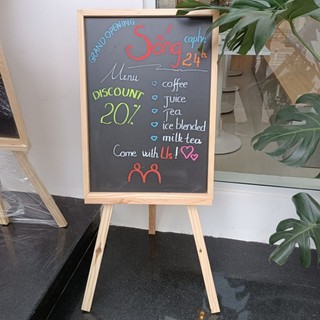 GRAND OPENING
Sống caphe
24h
Menu
DISCOUNT
20%
coffee
juice
Tea
ice blended
milk tea
Come with Us!